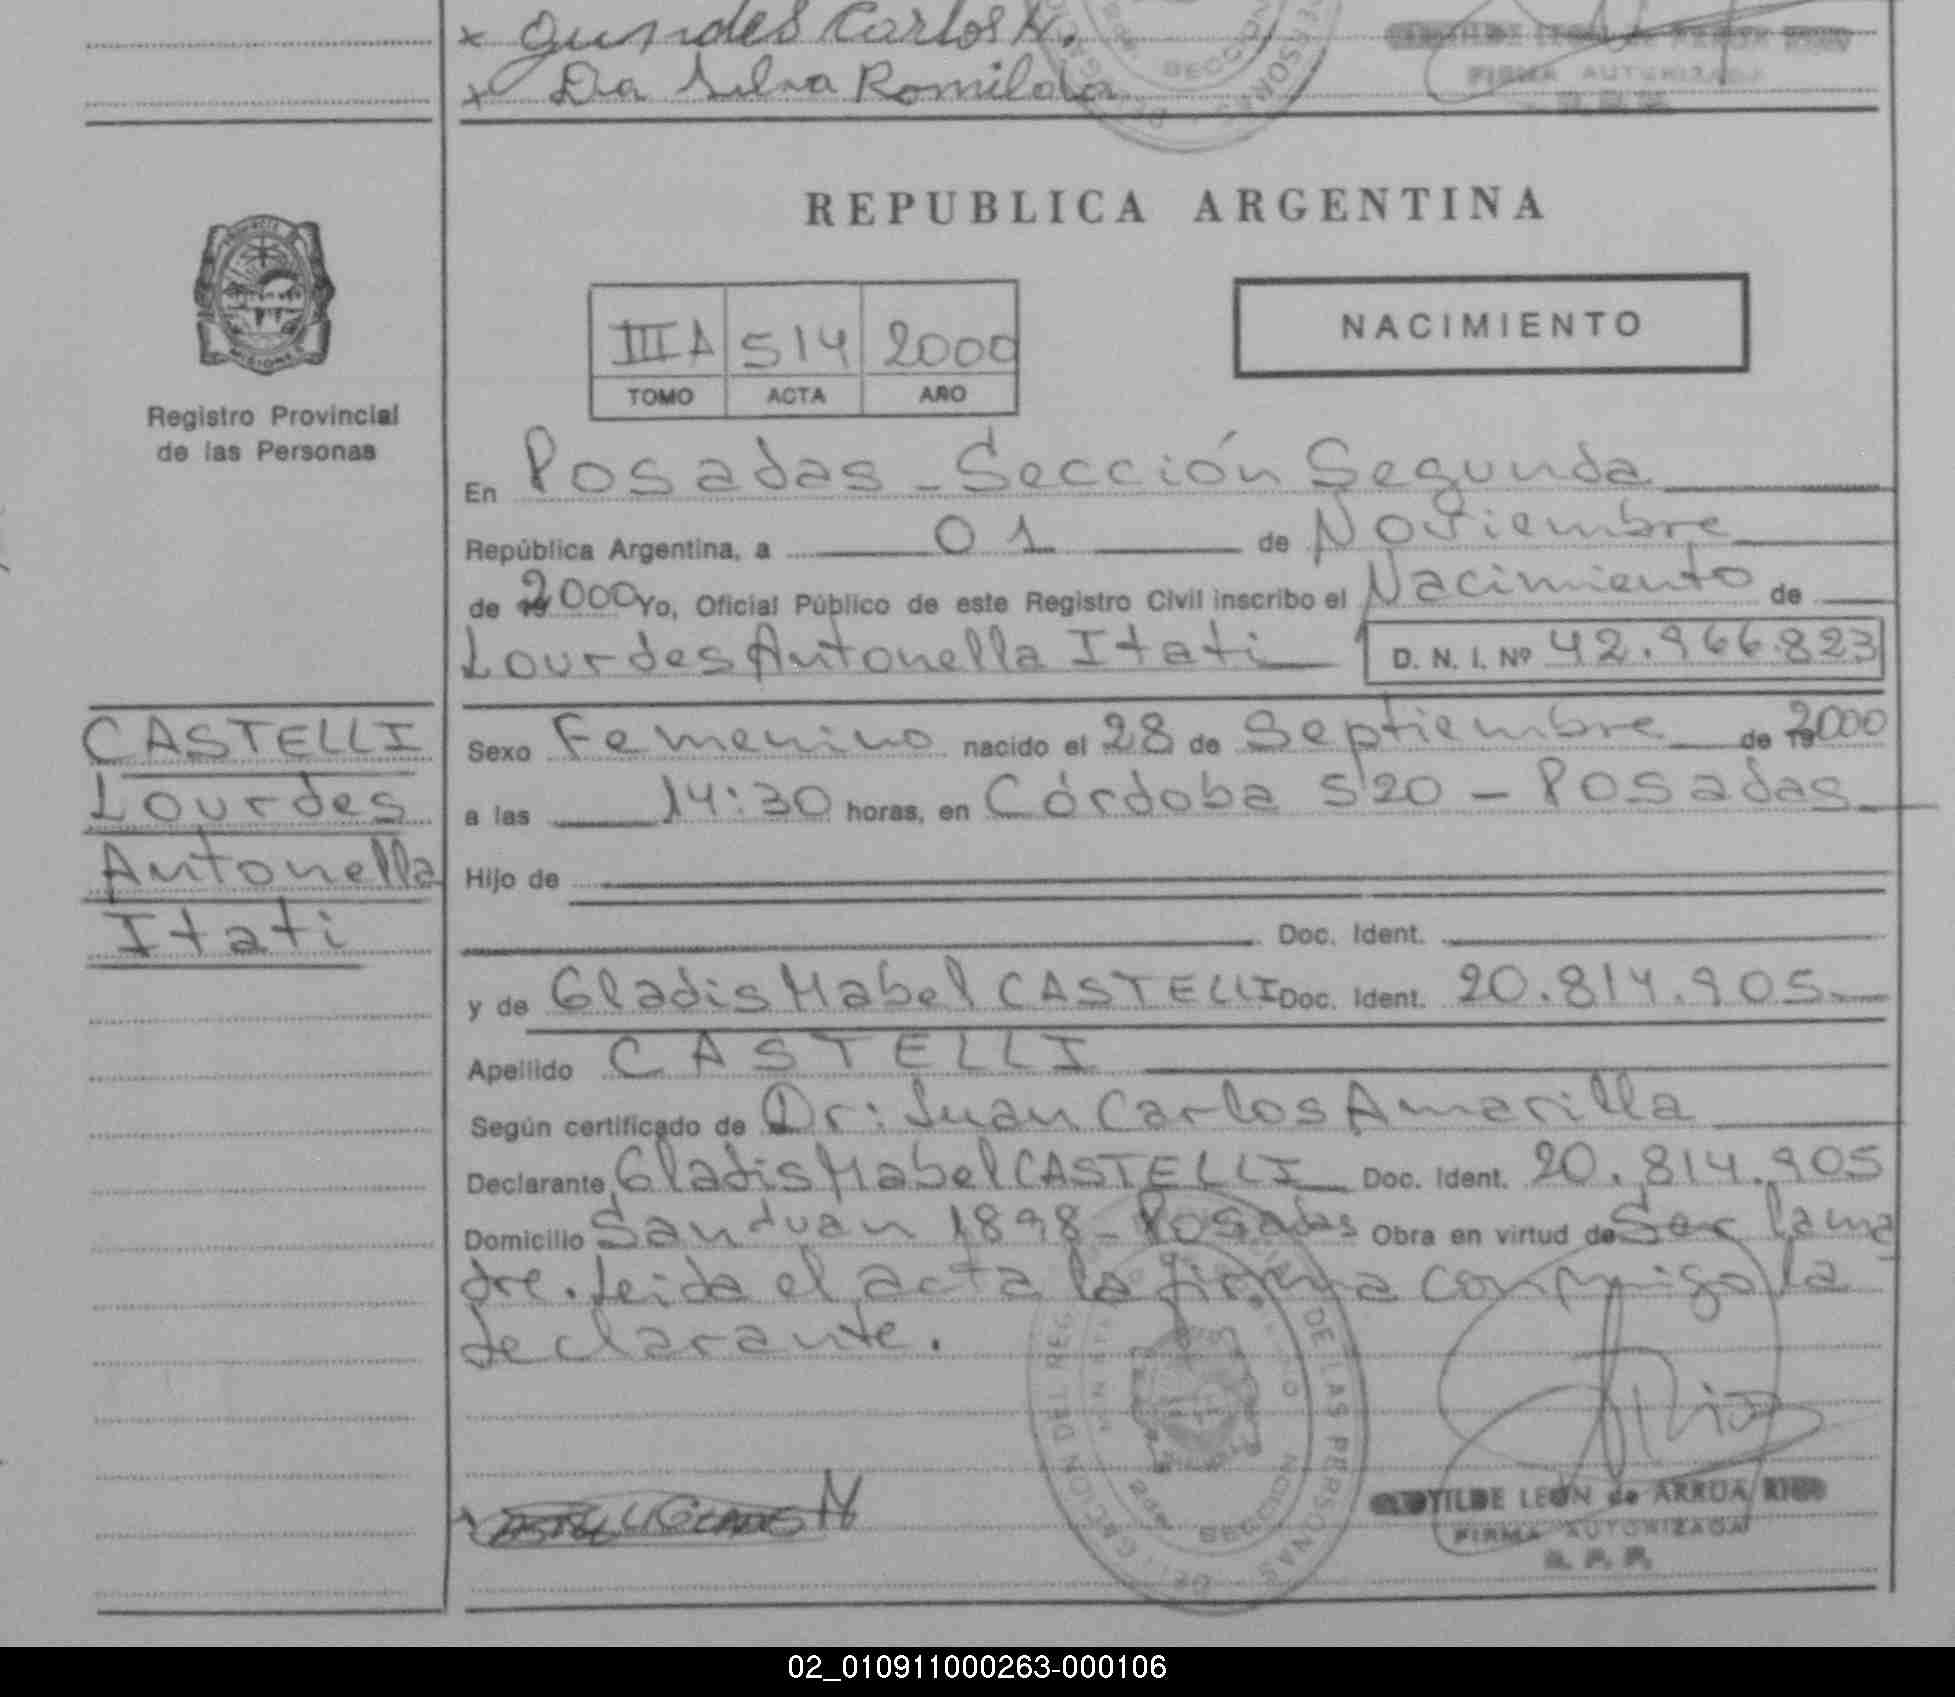 x Gundes Carlos N.
x Da Silva Romilda
FIRMA AUTORIZADA
REPUBLICA ARGENTINA
NACIMIENTO
III A 514 2000
TOMO ACTA AÑO
Registro Provincial
de las Personas
En Posadas - Sección Segunda
República Argentina, a 01 de Noviembre
de 2000 Yo, Oficial Público de este Registro Civil inscribo el Nacimiento de
Lourdes Antonella Itati D. N. I. Nº 42.966.823
CASTELLI
Lourdes
Antonella
Itati
Sexo Femenino nacido el 28 de Septiembre de 2000
a las 14:30 horas, en Córdoba 520 - Posadas
Hijo de
Doc. Ident.
y de Gladis Mabel CASTELLI Doc. Ident. 20.814.905
Apellido CASTELLI
Según certificado de Dr: Juan Carlos Amarilla
Declarante Gladis Mabel CASTELLI Doc. Ident. 20.814.905
Domicilio San Juan 1898 - Posadas Obra en virtud de Ser la ma
dre. Leida el acta la firma conmigo la
declarante.
DE LAS PERSONAS
SECCION
LEON de ARRUA RIOS
FIRMA AUTORIZADA
R. P. P.
02_010911000263-000106